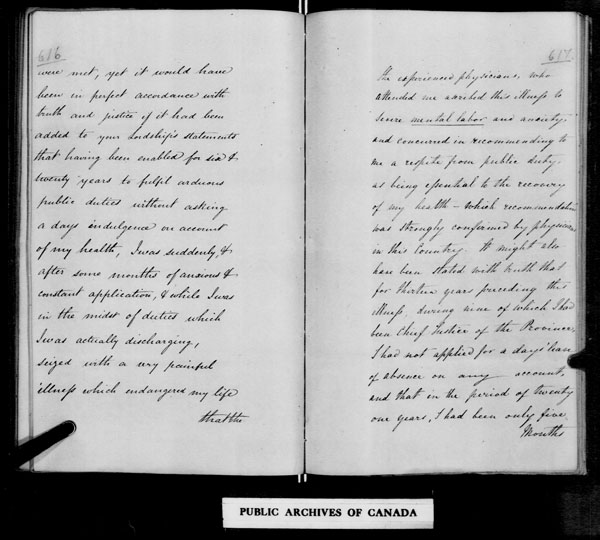 616
were met, yet it would have
been in perfect accordance with
truth and justice if it had been
added to your Lordship's statements
that having been enabled for six &
twenty years to fulfil arduous
public duties without asking
a days indulgence on account
of my health, I was suddenly, &
after some months of anxious &
constant application, & while I was
in the midst of duties which
I was actually discharging,
seized with a very painful
illness which endangered my life
that the
617
The experienced physicians, who
attended me ascribed this illness to
severe mental labor and anxiety,
and concurred in recommending to
me a respite from public duty,
as being essential to the recovery
of my health – which recommendation
was strongly confirmed by physicians
in this Country. It might also
have been stated with truth that
for thirteen years preceding this
illness, during nine of which I had
been Chief Justice of the Province,
I had not applied for a days' leave
of absence on any account,
and that in the period of twenty
one years, I had been only five
Months
PUBLIC ARCHIVES OF CANADA